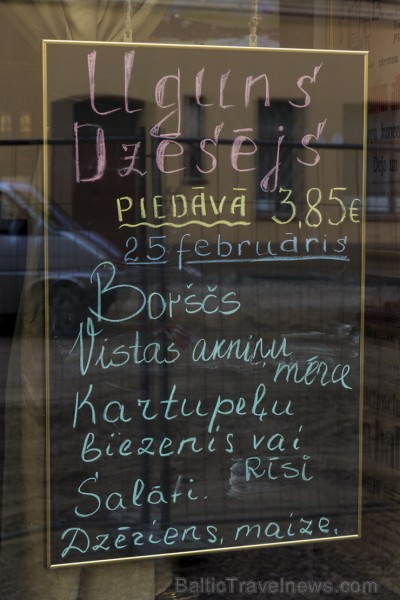 Uguns
Dzēsējs
PIEDĀVĀ 3,85€
25 februāris
Borščs
Vistas akniņu
mērce
Kartupeļu
Biezenis vai
RĪSI
Salāti.
Dzēriens, maize.
BalticTravelnews.com